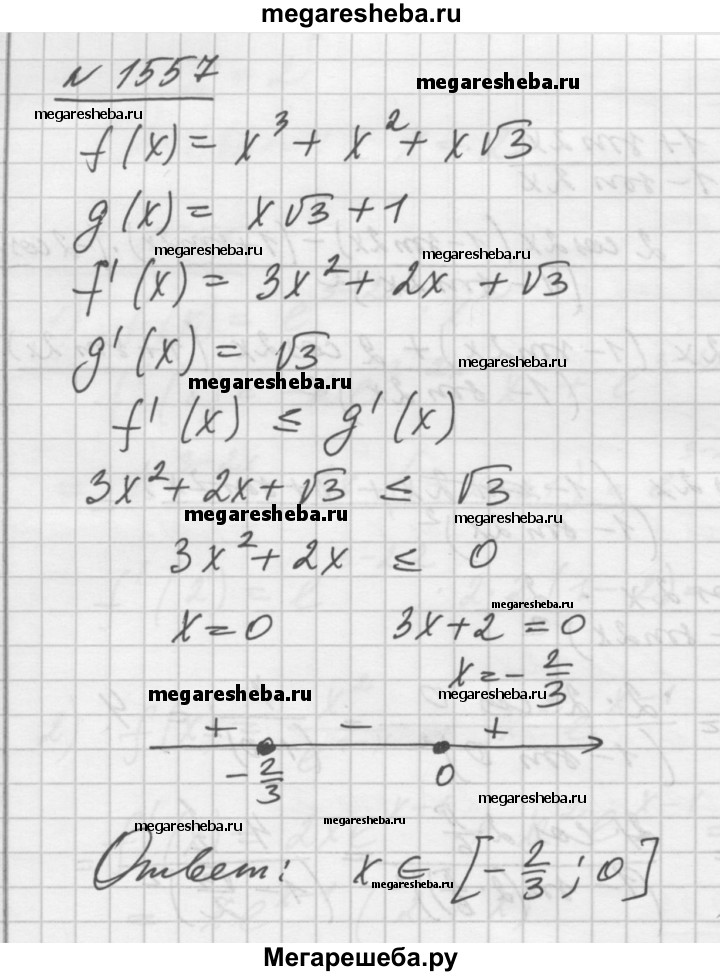 megaresheba.ru
N 1557
megaresheba.ru
megaresheba.ru
f(x) = x³ + x² + x√3
g(x) = x√3 + 1
megaresheba.ru
megaresheba.ru
f'(x) = 3x² + 2x + √3
g'(x) = √3
megaresheba.ru
megaresheba.ru
f'(x) ≤ g'(x)
3x² + 2x + √3 ≤ √3
megaresheba.ru
megaresheba.ru
3x² + 2x ≤ 0
megaresheba.ru
x = 0 3x + 2 = 0
x = - 2/3
megaresheba.ru
megaresheba.ru
+ - +
- 2/3 0
megaresheba.ru
megaresheba.ru
megaresheba.ru
Ответ: x ∈ [- 2/3 ; 0]
megaresheba.ru
Мегарешеба.ру